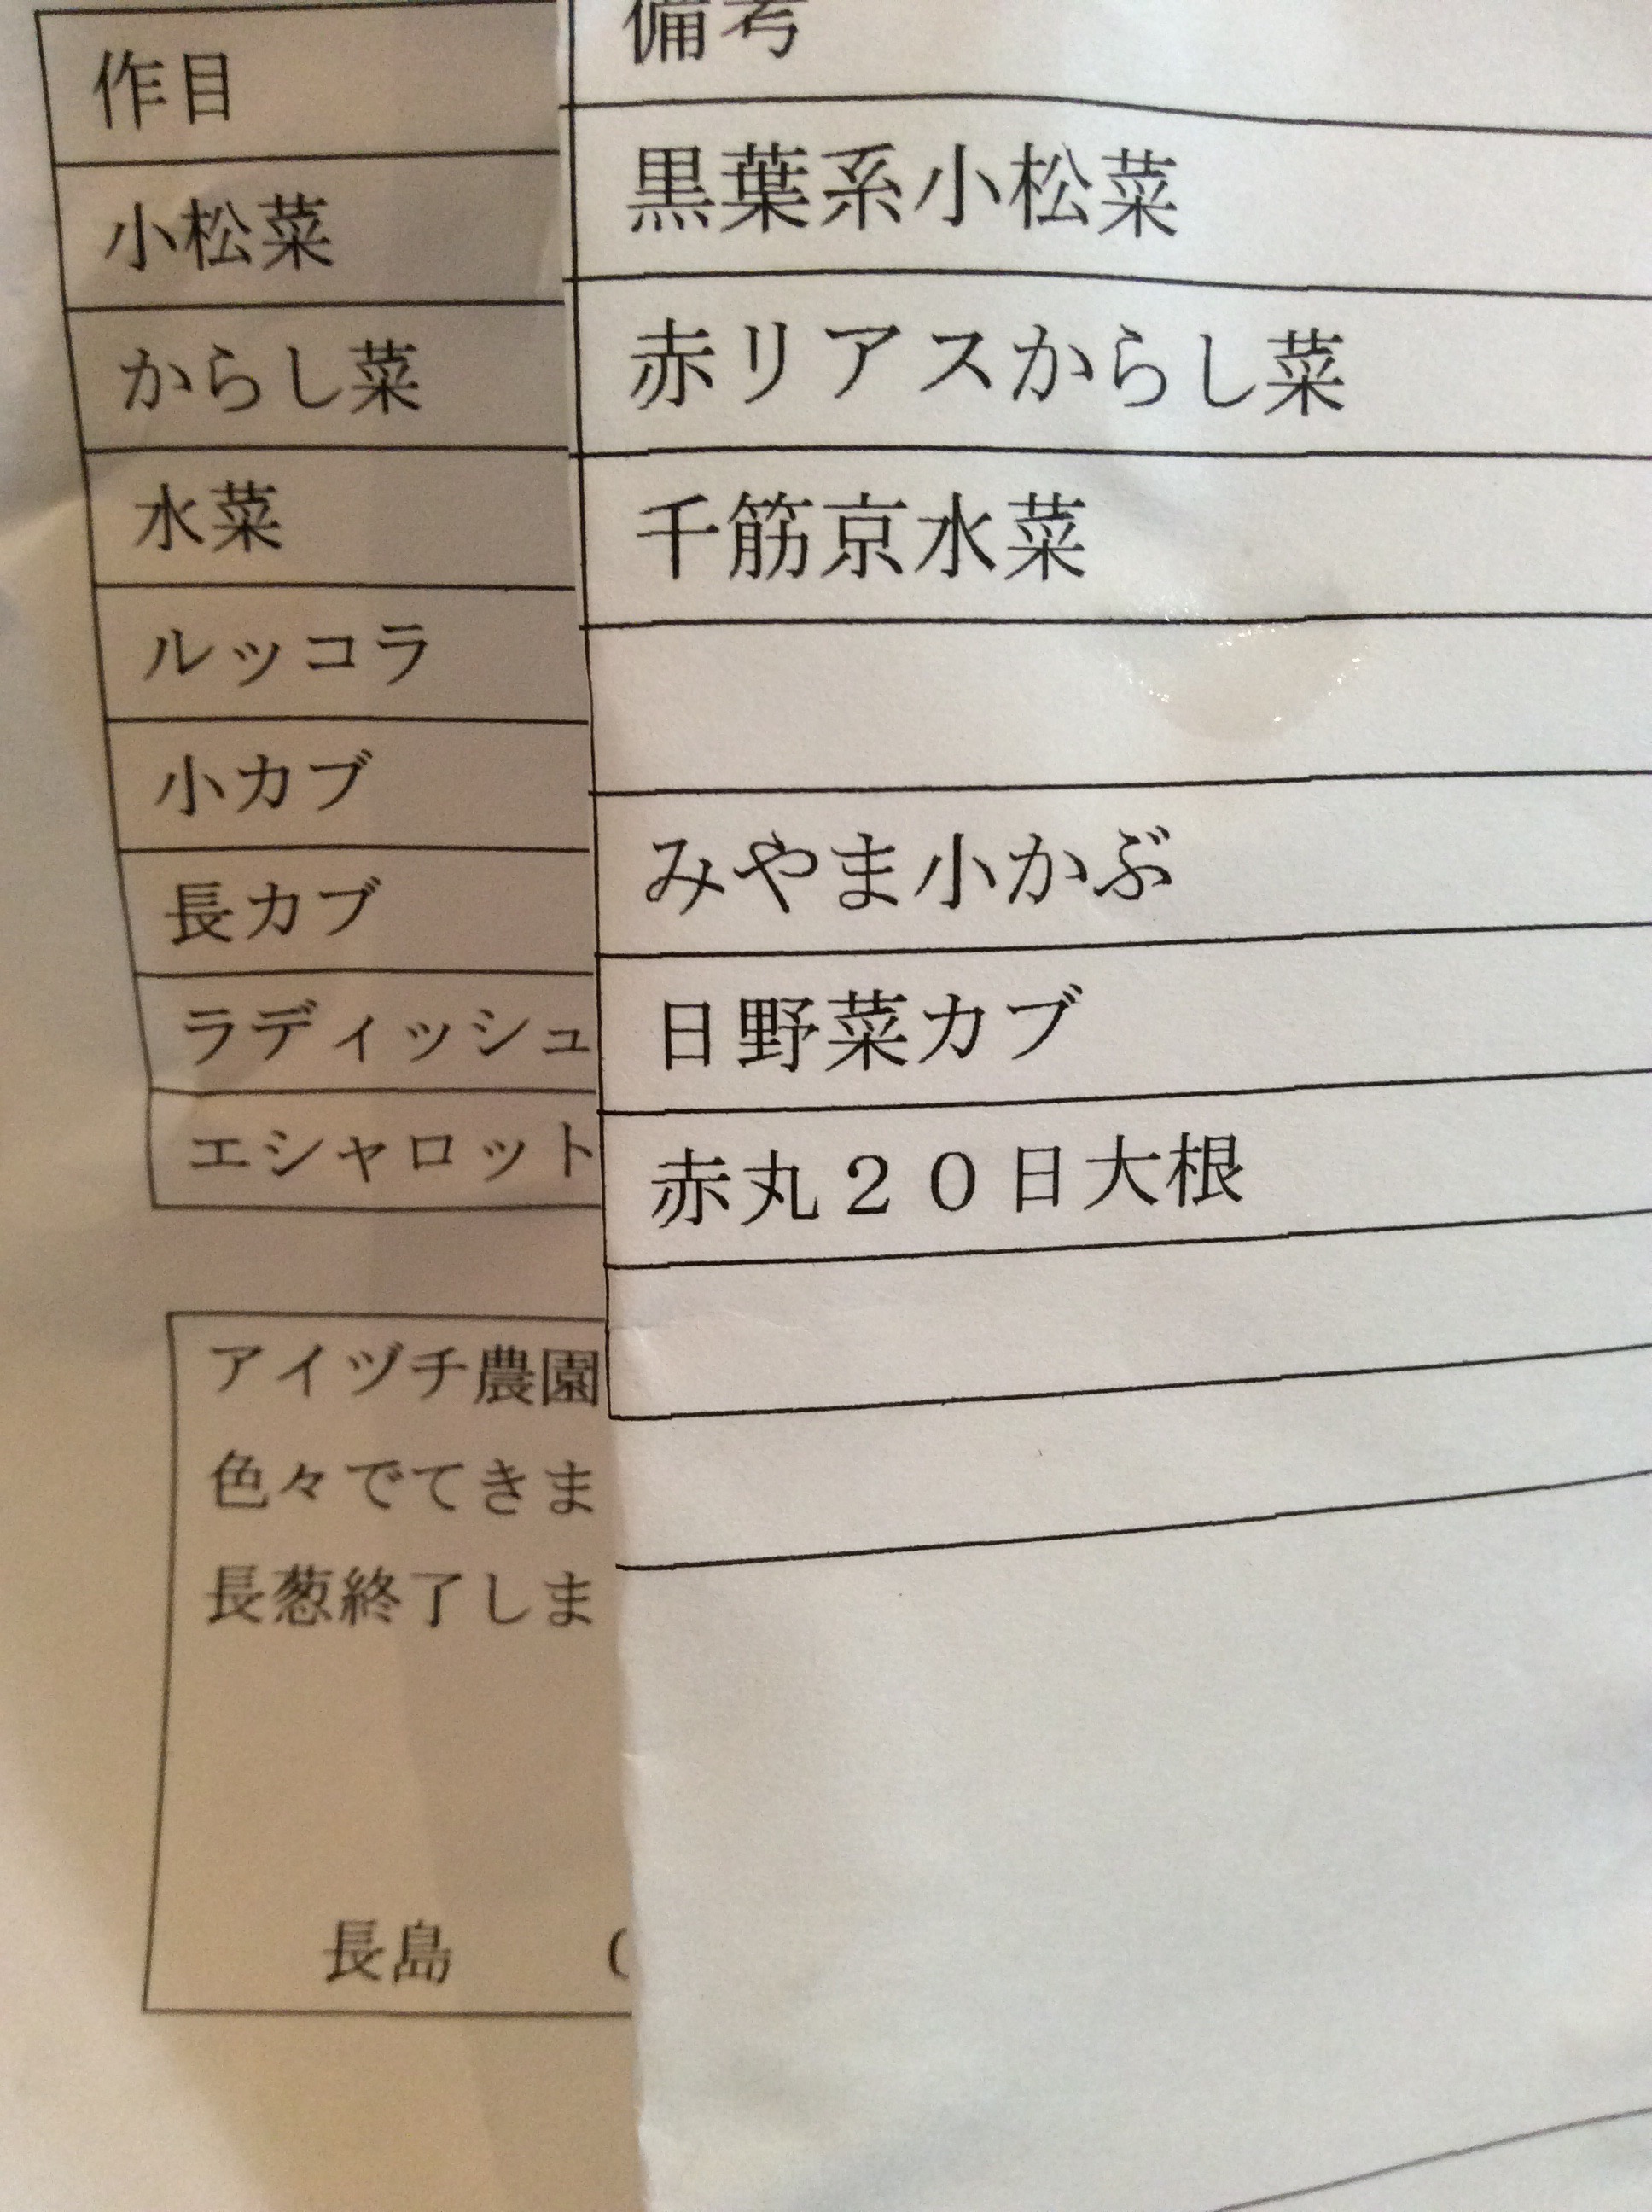 作目 備考
小松菜 黒葉系小松菜
からし菜 赤リアスからし菜
水菜 千筋京水菜
ルッコラ
小カブ みやま小かぶ
長カブ 日野菜カブ
ラディッシュ 赤丸２０日大根
エシャロット
アイヅチ農園
色々でてきま
長葱終了しま
長島 (